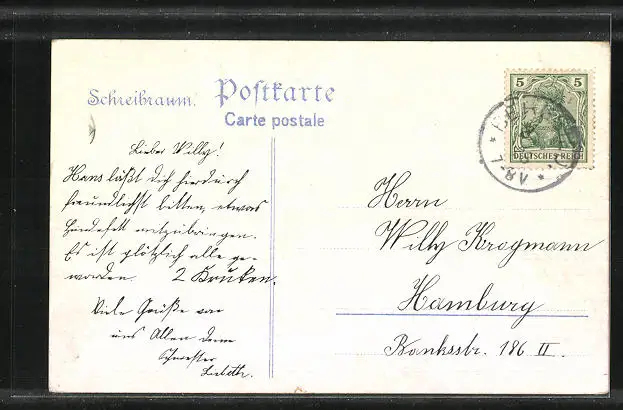 Schreibraum.
Postkarte
Carte postale
5 5
DEUTSCHES REICH
Lieber Willy!
Hans läßt dich hierdurch
freundlichst bitten, etwas
Hundefett mitzubringen.
Es ist plötzlich alle ge-
worden. 2 Kruken.
Viele Grüße von
uns Allen deine
Schwester
Herrn
Willy Krogmann
Hamburg
Banksstr. 186 II.